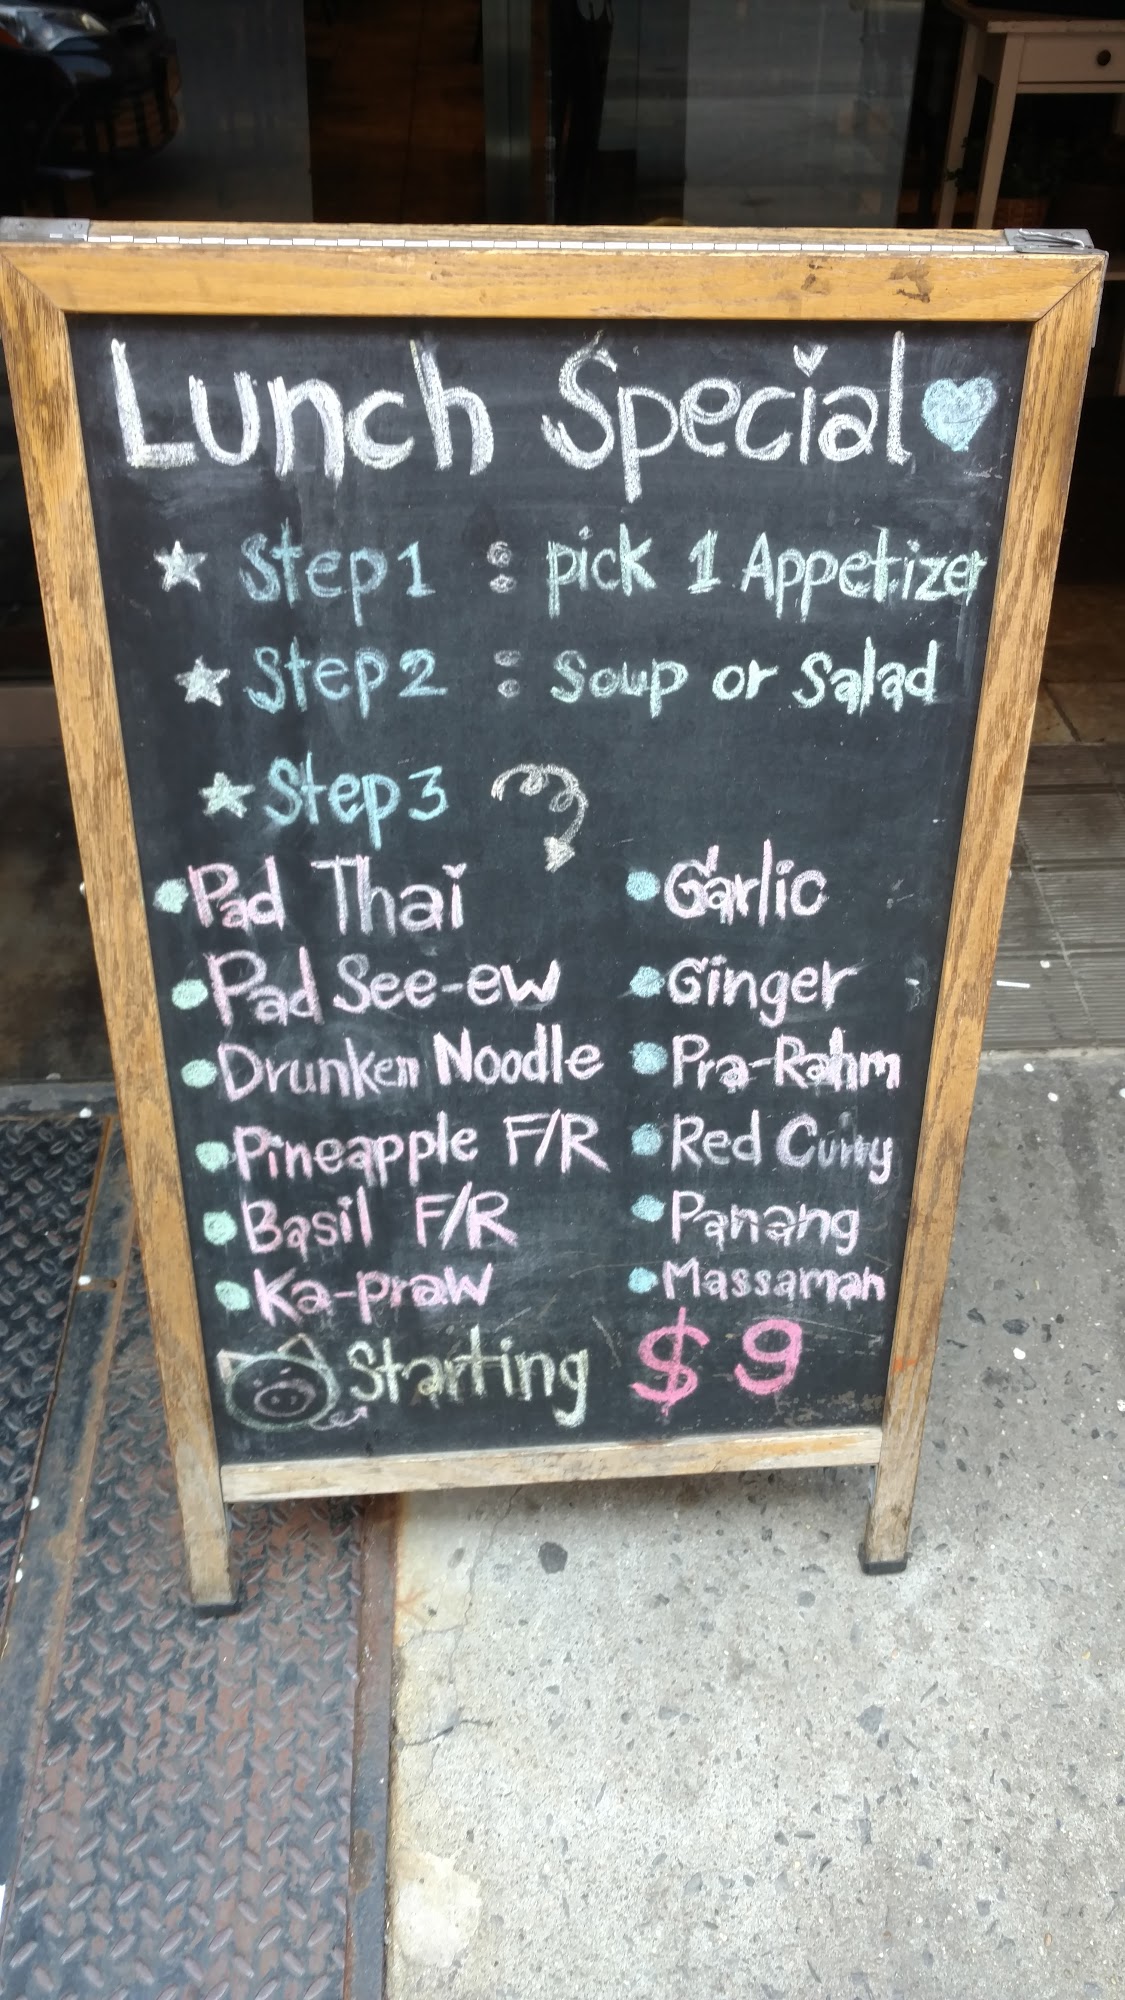 Lunch Special
Step 1 : pick 1 Appetizer
Step 2 : Soup or Salad
Step 3
Pad Thai
Pad See-ew
Drunken Noodle
Pineapple F/R
Basil F/R
Ka-praw
Garlic
Ginger
Pra-Rahm
Red Curry
Panang
Massaman
Starting $9